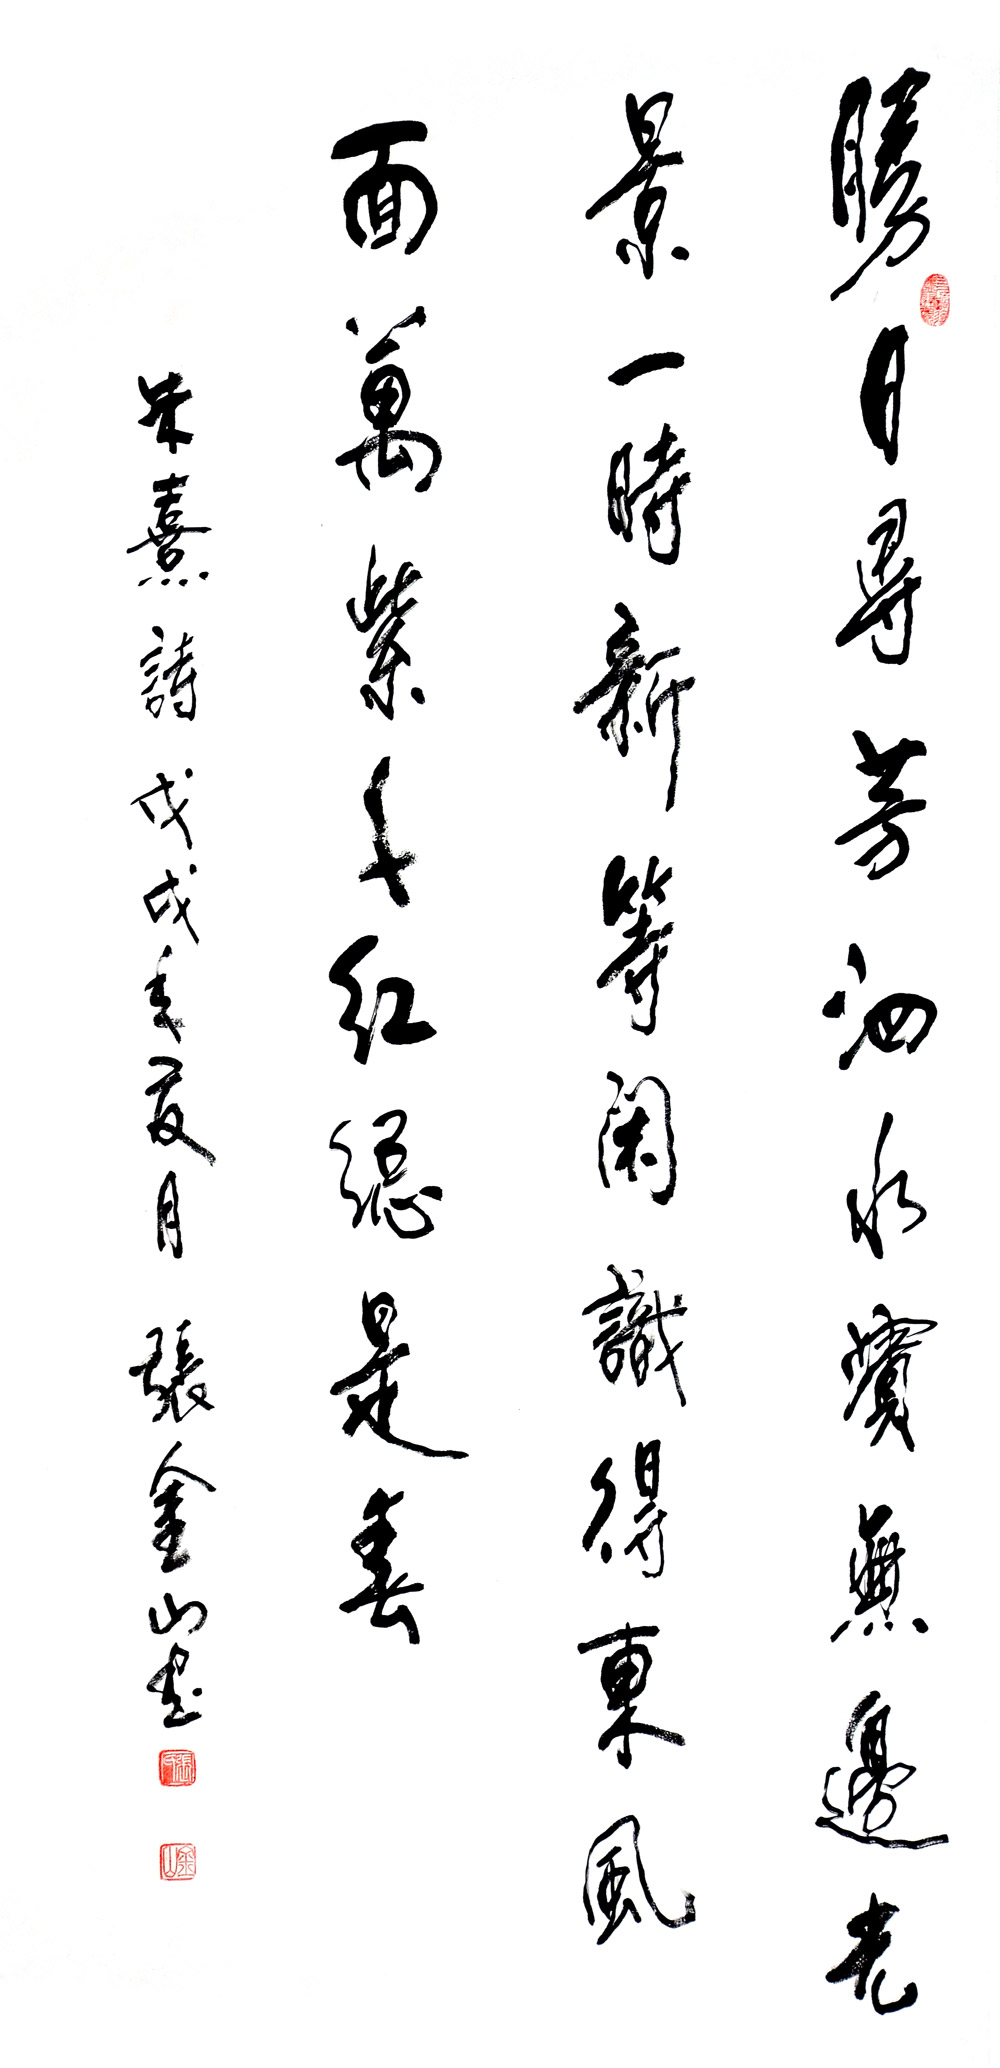 勝日尋芳泗水濱無邊光
景一時新等閑識得東風
面萬紫千紅總是春
朱熹詩 戊戌年夏月 張金山書
金山